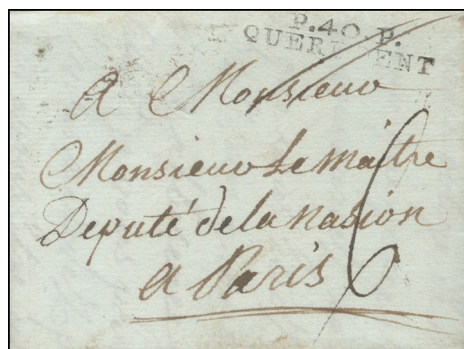 P.40.P.
A Monsieur
Monsieur Le Maitre
Deputé de la nation
a Paris 6